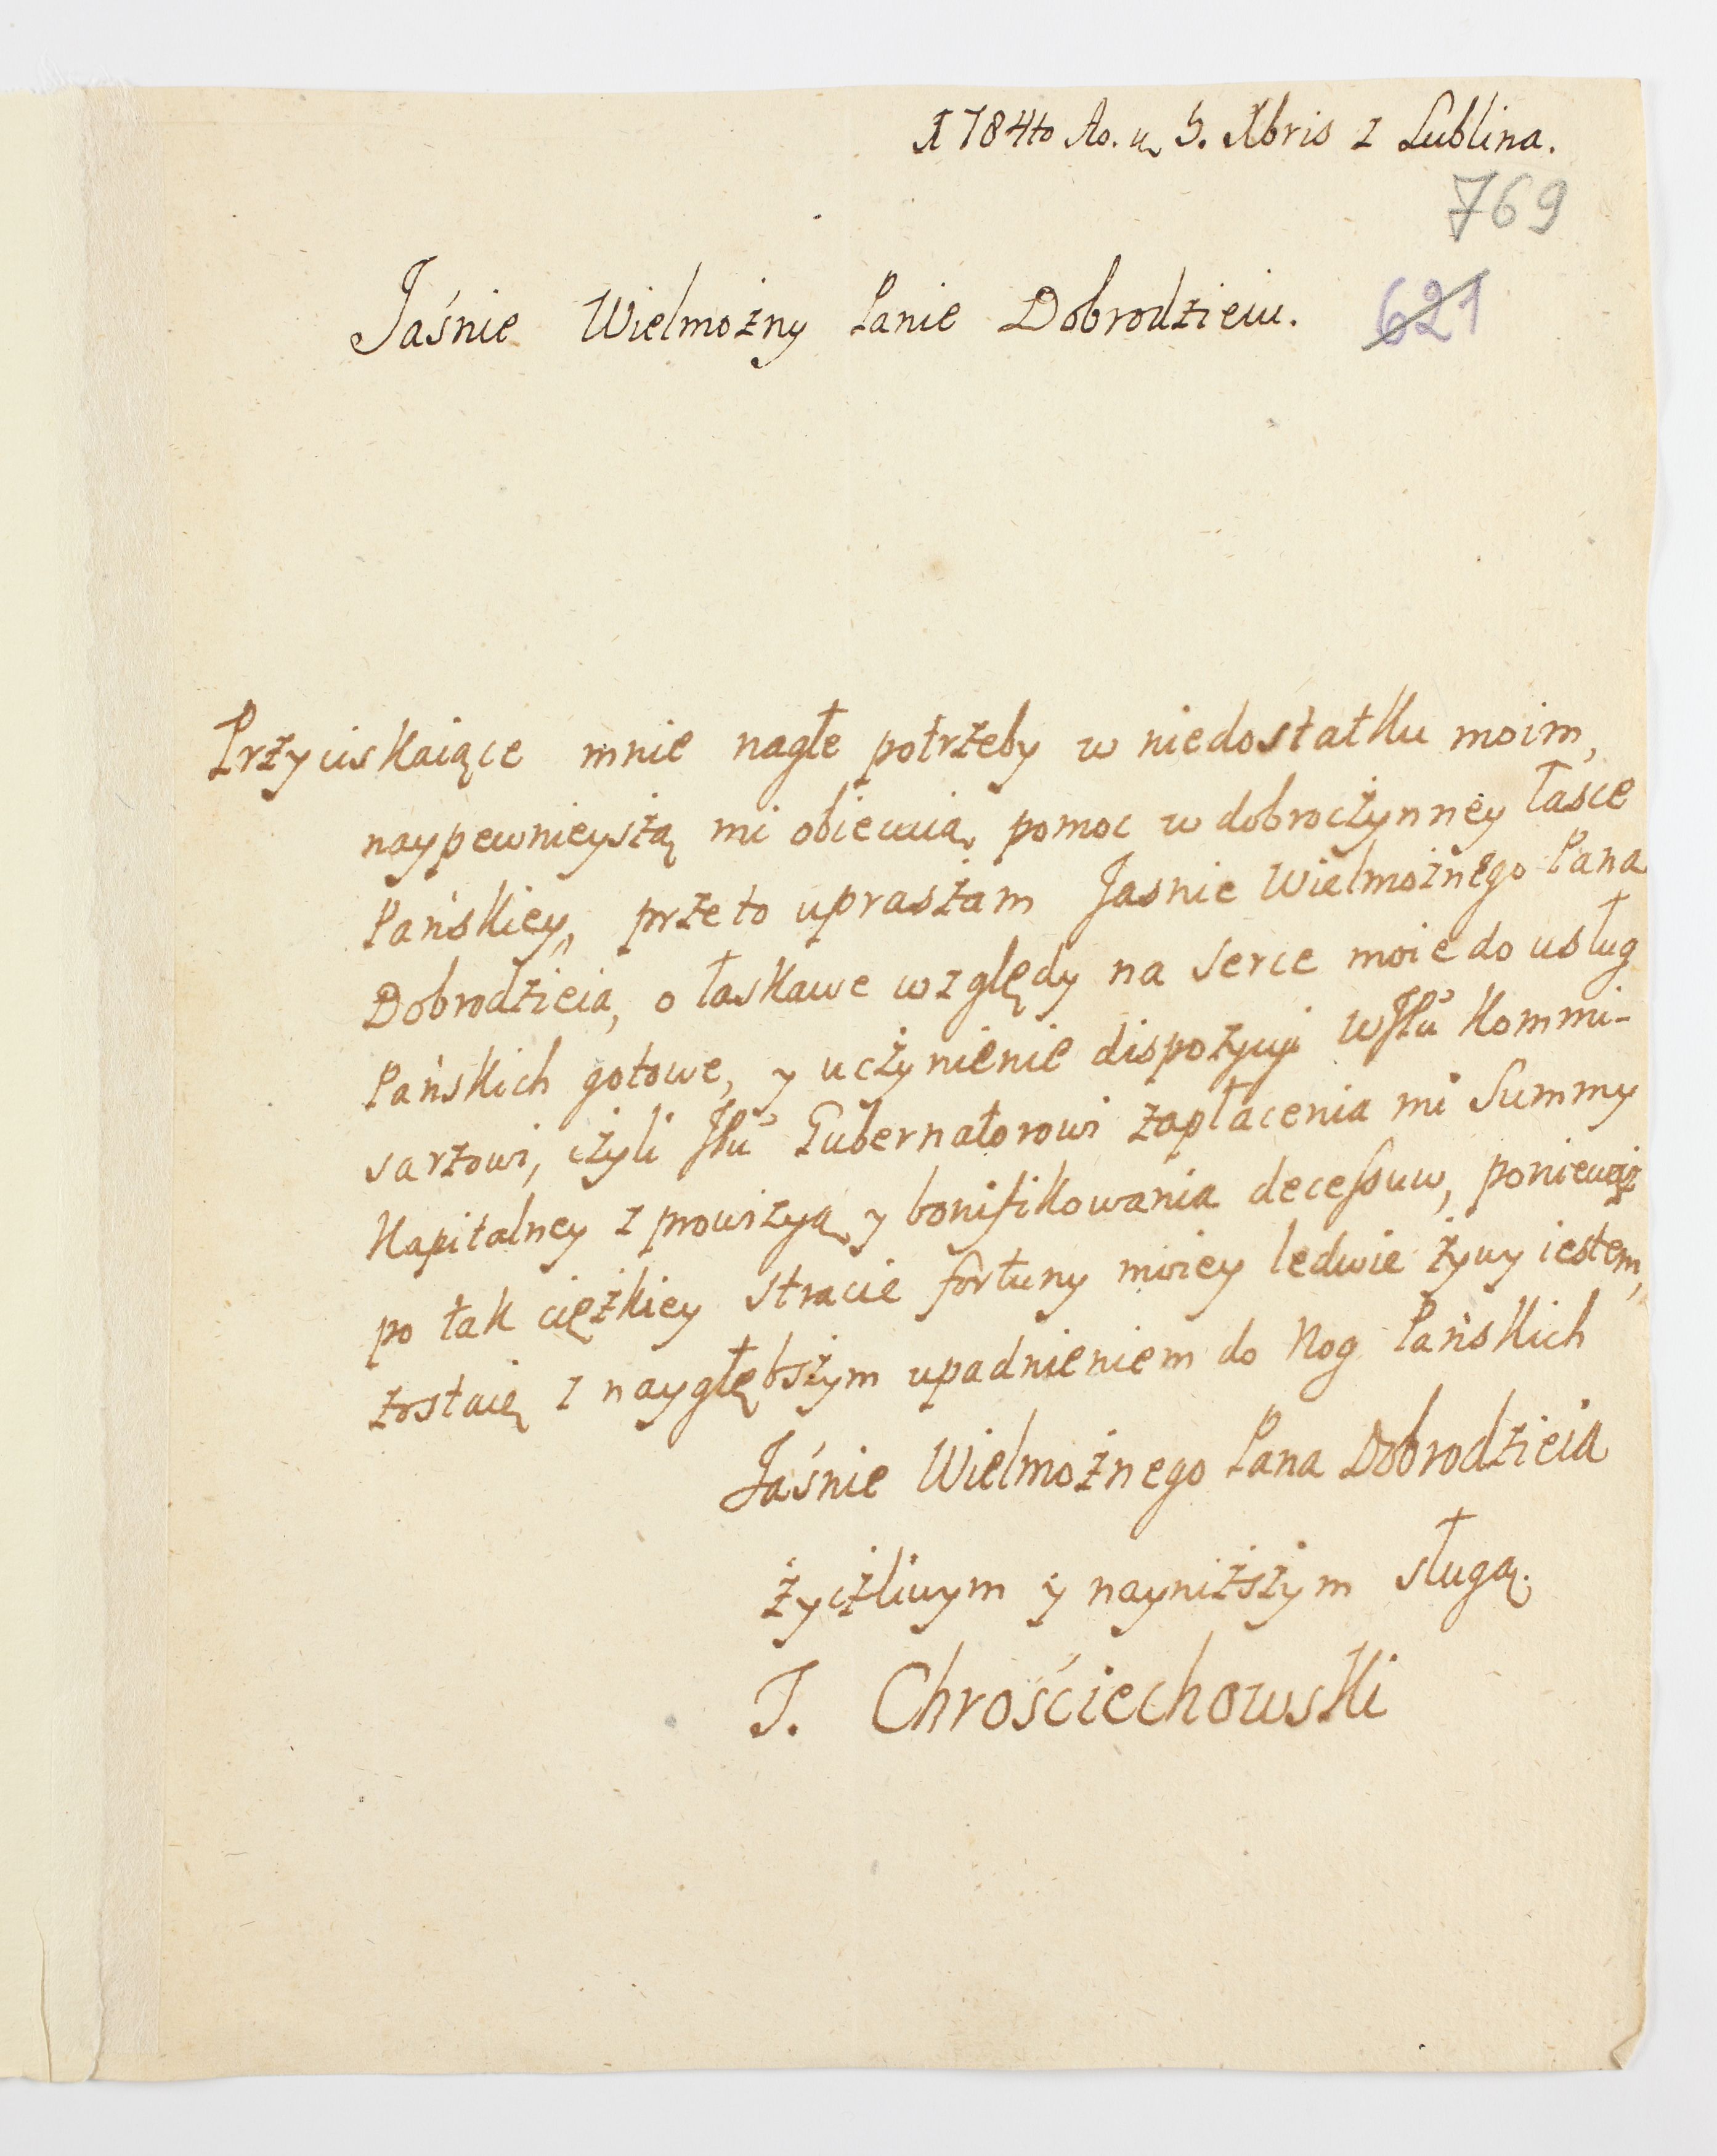 1784to Ao. d. 5. Xbris z Lublina.
769
Jaśnie Wielmożny Panie Dobrodzieiu.
621
Przyciskaiące mnie nagłe potrzeby w niedostatku moim,
naypewnieyszą mi obiecuią pomoc w dobroczynney łasce
Pańskiey, przeto upraszam Jasnie Wielmożnego Pana
Dobrodzieia, o łaskawe względy na serce moie do usług
Pańskich gotowe, y uczynienie dispozycyi WJPu Kommi-
sarzowi, czyli JPu Gubernatorowi zapłacenia mi Summy
Kapitalney z prowizyą y bonifikowania decessuw, ponieważ
po tak ciężkiey stracie fortuny moiey ledwie żywy iestem,
zostaię z naygłębszym upadnieniem do Nog Pańskich
Jaśnie Wielmożnego Pana Dobrodzieia
życzliwym y nayniższym sługą.
J. Chrościechowski